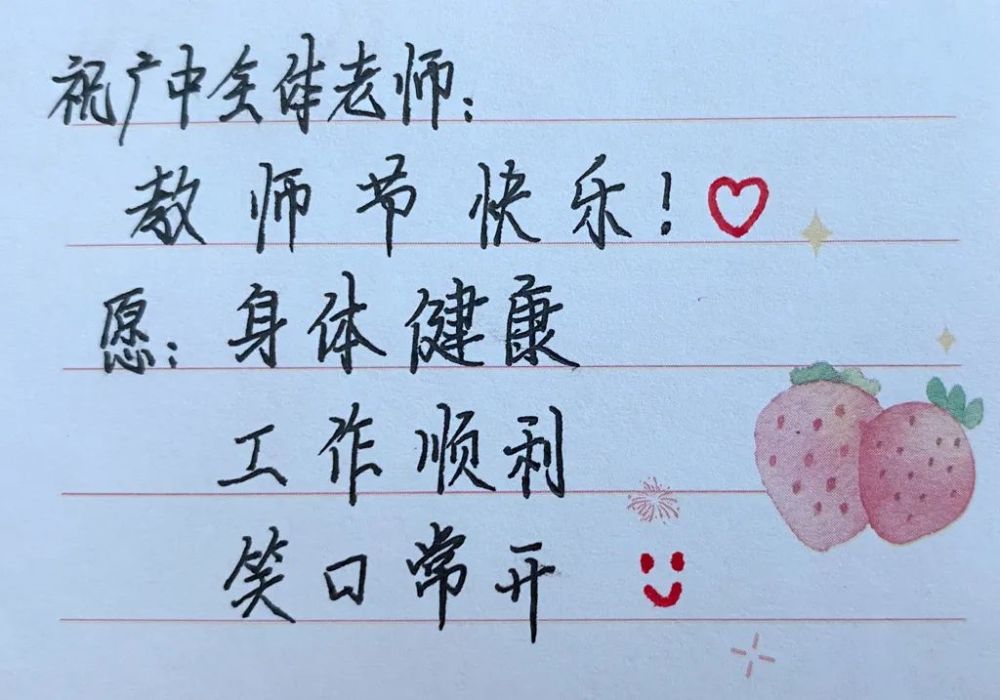 祝广中全体老师:
教师节快乐!
愿:身体健康
工作顺利
笑口常开